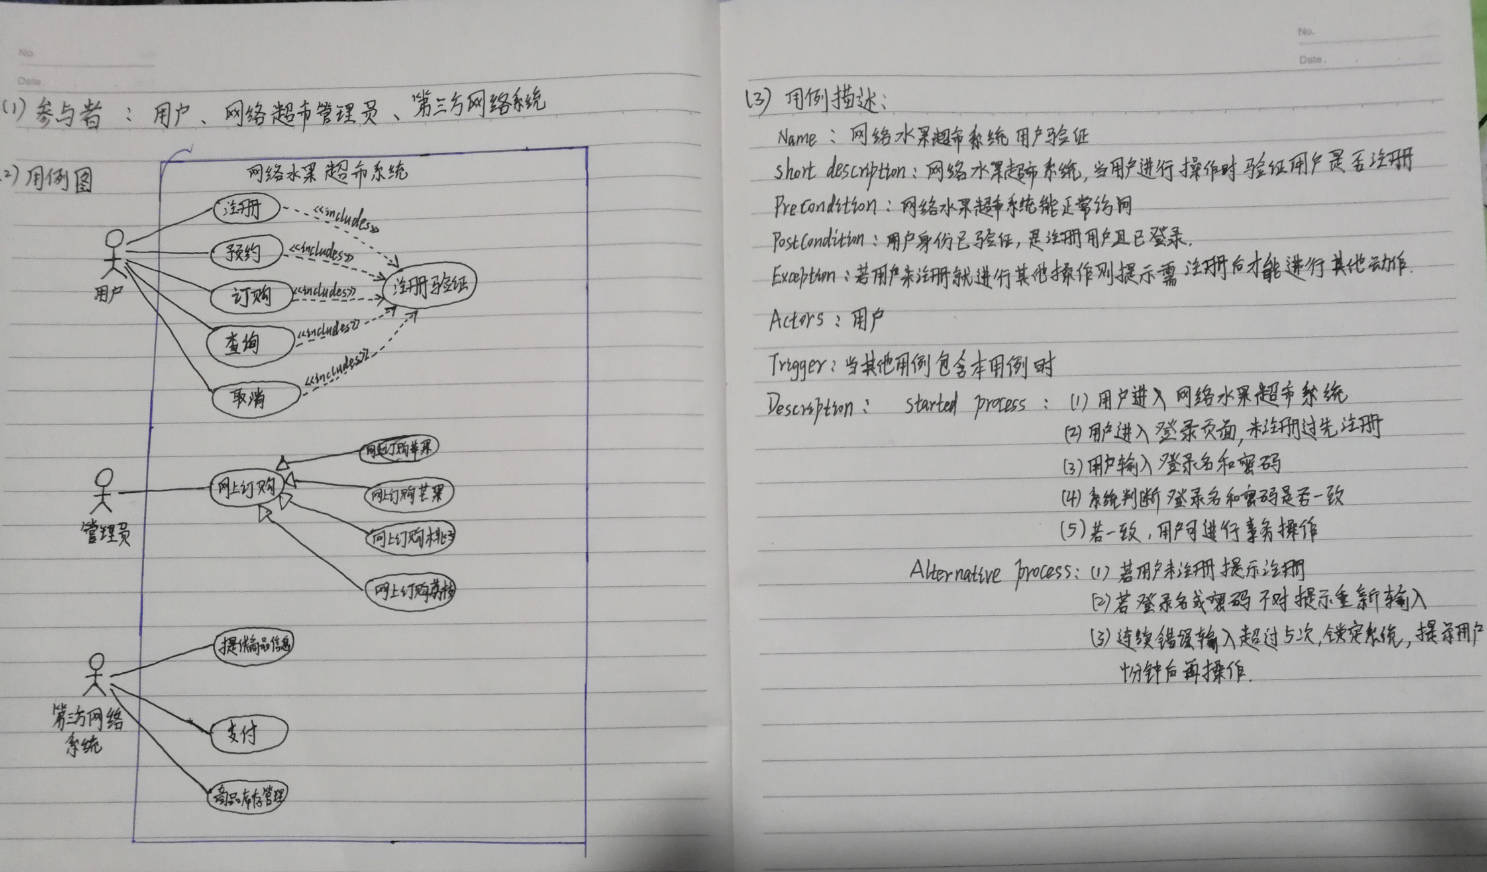 No.
Date.
(1) 参与者：用户、网络超市管理员、第三方网络系统
(2) 用例图
网络水果超市系统
注册
<<includes>>
预约
<<includes>>
订购
<<includes>>
查询
<<includes>>
取消
<<includes>>
注册验证
用户
网上订购
网上订购苹果
网上订购芒果
网上订购桃子
网上订购荔枝
管理员
提供商品信息
支付
商品库存管理
第三方网络
系统
No.
Date.
(3) 用例描述：
Name：网络水果超市系统用户验证
short description：网络水果超市系统，当用户进行操作时验证用户是否注册
Precondition：网络水果超市系统能正常访问
Postcondition：用户身份已验证，是注册用户且已登录.
Exception：若用户未注册就进行其他操作则提示需注册后才能进行其他动作.
Actors：用户
Trigger：当其他用例包含本用例时
Description： started process：(1) 用户进入网络水果超市系统
(2) 用户进入登录页面，未注册过先注册
(3) 用户输入登录名和密码
(4) 系统判断登录名和密码是否一致
(5) 若一致，用户可进行事务操作
Alternative process：(1) 若用户未注册提示注册
(2) 若登录名或密码不对提示重新输入
(3) 连续错误输入超过5次，锁定系统，提示用户
分钟后再操作.